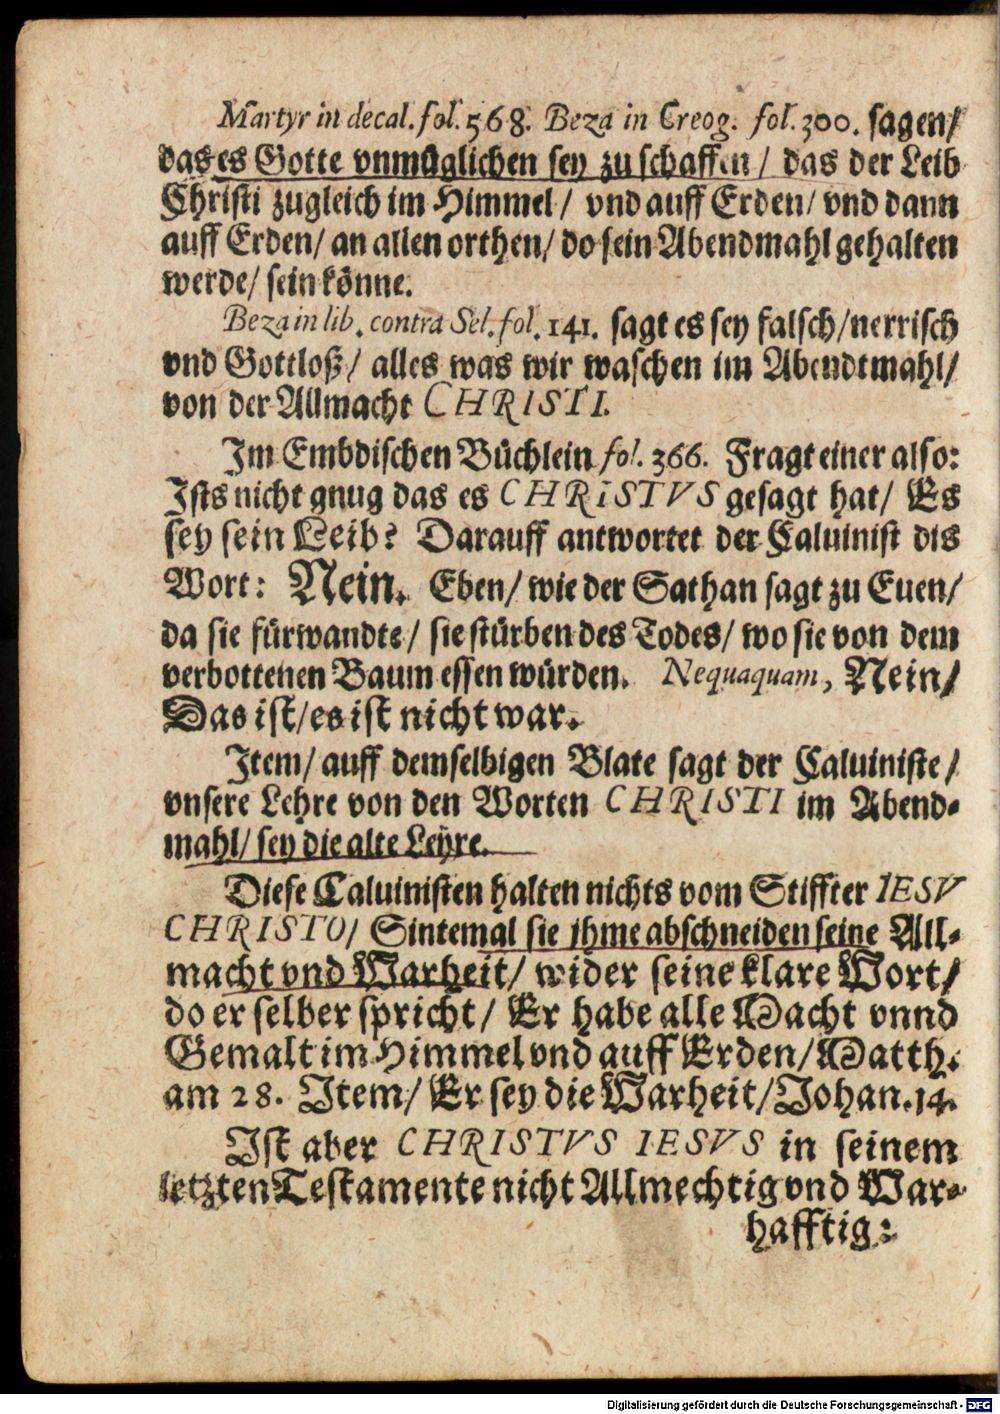 Martyr in decal. fol. 568. Beza in Creog. fol. 300. sagen/
das es Gotte vnmüglichen sey zu schaffen / das der Leib
Christi zugleich im Himmel / vnd auff Erden / vnd dann
auff Erden / an allen orthen / do sein Abendmahl gehalten
werde / sein könne.
Beza in lib. contra Sel. fol. 141. sagt es sey falsch / nerrisch
vnd Gottloß / alles was wir waschen im Abendtmahl /
von der Allmacht CHRISTI.
Im Embdischen Büchlein fol. 366. Fragt einer also:
Ists nicht gnug das es CHRISTVS gesagt hat / Es
sey sein Leib? Darauff antwortet der Caluinist dis
Wort: Nein. Eben / wie der Sathan sagt zu Euen /
da sie fürwandte / sie stürben des Todes / wo sie von dem
verbottenen Baum essen würden. Nequaquam, Nein /
Das ist / es ist nicht war.
Item / auff demselbigen Blate sagt der Caluiniste /
vnsere Lehre von den Worten CHRISTI im Abend-
mahl / sey die alte Leyre.
Diese Caluinisten halten nichts vom Stiffter IESV
CHRISTO / Sintemal sie ihme abschneiden seine All-
macht vnd Warheit / wider seine klare Wort /
do er selber spricht / Er habe alle Macht vnnd
Gemalt im Himmel vnd auff Erden / Matth.
am 28. Item / Er sey die Warheit / Johan. 14.
Ist aber CHRISTVS IESVS in seinem
letzten Testamente nicht Allmechtig vnd War-
hafftig:
Digitalisierung gefördert durch die Deutsche Forschungsgemeinschaft - DFG